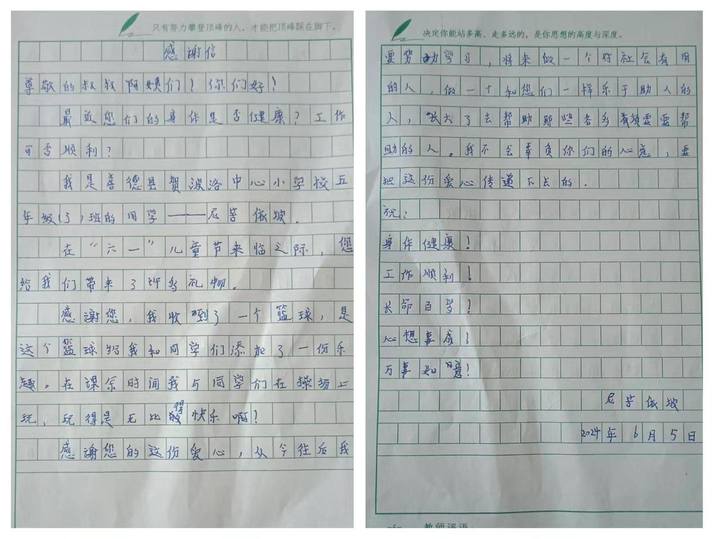 只有努力攀登顶峰的人，才能把顶峰踩在脚下。
感谢信
尊敬的叔叔阿姨们！你们好！
最近您们的身体是否健康？工作
可否顺利？
我是善德县贺波洛中心小学校五
年级(3)班的同学——尼苦依坡。
在“六一”儿童节来临之际，您
给我们带来了许多礼物。
感谢您，我收到了一个篮球，是
这个篮球给我和同学们添加了一份乐
趣。在课余时间我与同学们在操场上
玩，玩得是无比的快乐啊！
感谢您的这份爱心，从今往后我
决定你能站多高、走多远的，是你思想的高度与深度。
要努力学习，将来做一个对社会有用
的人，做一个和您们一样乐于助人的
人，长大了去帮助那些贫需要帮
助的人。我不会辜负你们的心意，要
把这份爱心传递下去的。
祝：
身体健康！
工作顺利！
长命百岁！
心想事成！
万事如意！
尼苦依坡
2024年6月5日
教师评语